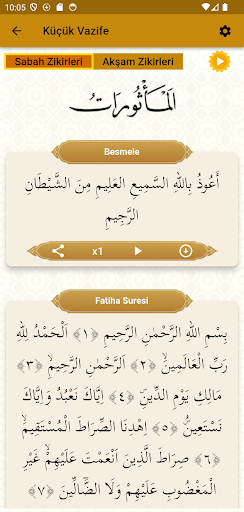 10:05
Küçük Vazife
Sabah Zikirleri Akşam Zikirleri
المَأْثُورَاتُ
Besmele
أَعُوذُ بِاللهِ السَّمِيعِ الْعَلِيمِ مِنَ الشَّيْطَانِ
الرَّجِيمِ
x1
Fatiha Suresi
بِسْمِ اللهِ الرَّحْمٰنِ الرَّحِيمِ ﴿١﴾ اَلْحَمْدُ لِلّٰهِ
رَبِّ الْعَالَمِينَۙ ﴿٢﴾ اَلرَّحْمٰنِ الرَّحِيمِۙ ﴿٣﴾
مَالِكِ يَوْمِ الدِّينِۜ ﴿٤﴾ اِيَّاكَ نَعْبُدُ وَاِيَّاكَ
نَسْتَعِينُۜ ﴿٥﴾ اِهْدِنَا الصِّرَاطَ الْمُسْتَقِيمَۙ
﴿٦﴾ صِرَاطَ الَّذِينَ اَنْعَمْتَ عَلَيْهِمْۙ غَيْرِ
الْمَغْضُوبِ عَلَيْهِمْ وَلَا الضَّٓالِّينَ ﴿٧﴾